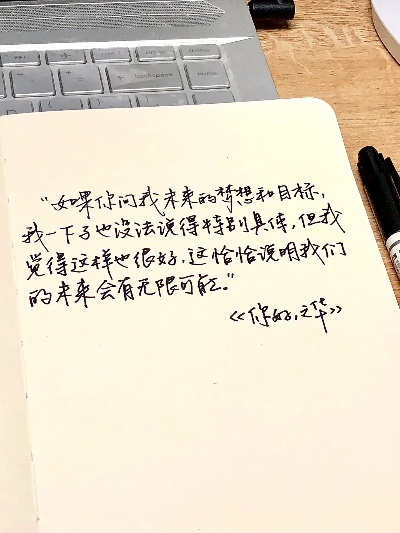 backspace
home
"如果你问我未来的梦想和目标,
我一下子也没法说得特别具体,但我
觉得这样也很好,这恰恰说明我们
的未来会有无限可能。"
《你好,之华》